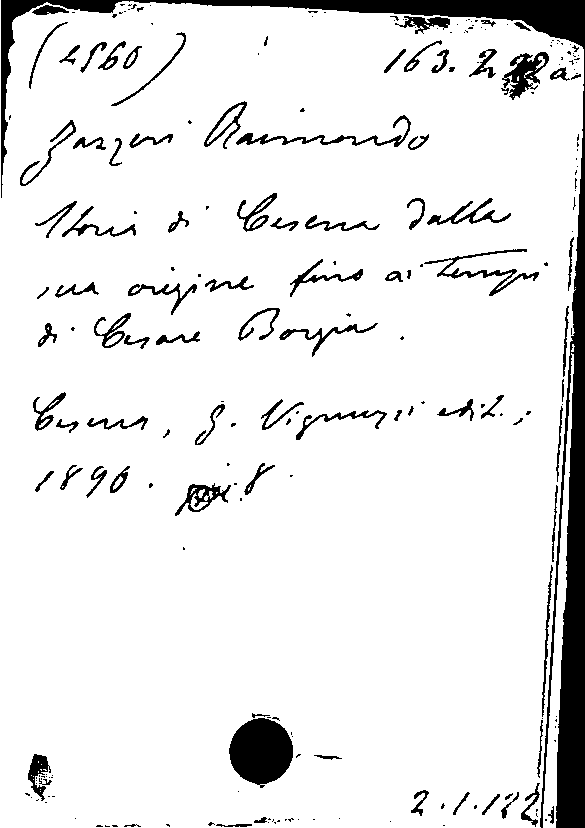 (4560) 163.2
Zazzeri Raimondo
Storia di Cesena dalla
sua origine fino ai tempi
di Cesare Borgia.
Cesena, G. Vignuzzi edit.,
1890. 8.
2.1.122